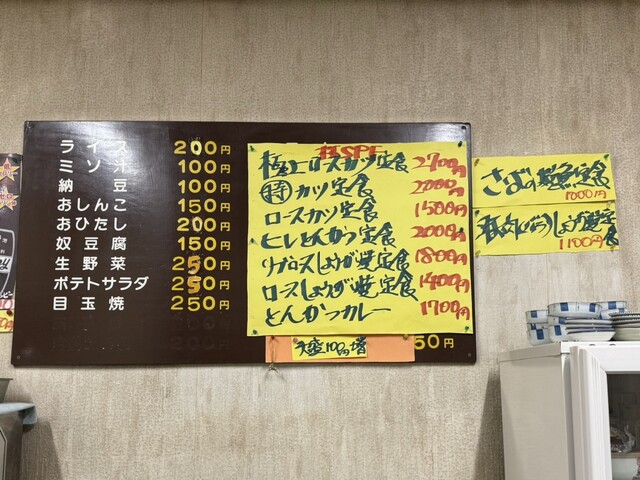 ライス 200円
ミソ汁 100円
納豆 100円
おしんこ 150円
おひたし 200円
奴豆腐 150円
生野菜 250円
ポテトサラダ 250円
目玉焼 250円
林SPF
極上ロースカツ定食 2700円
特カツ定食 2000円
ロースカツ定食 1500円
ヒレとんかつ定食 2000円
リブロースしょうが焼定食 1800円
ロースしょうが焼定食 1400円
とんかつカレー 1700円
大盛100円増
50円
さばの塩焼定食
1000円
しょうが焼定食
1100円